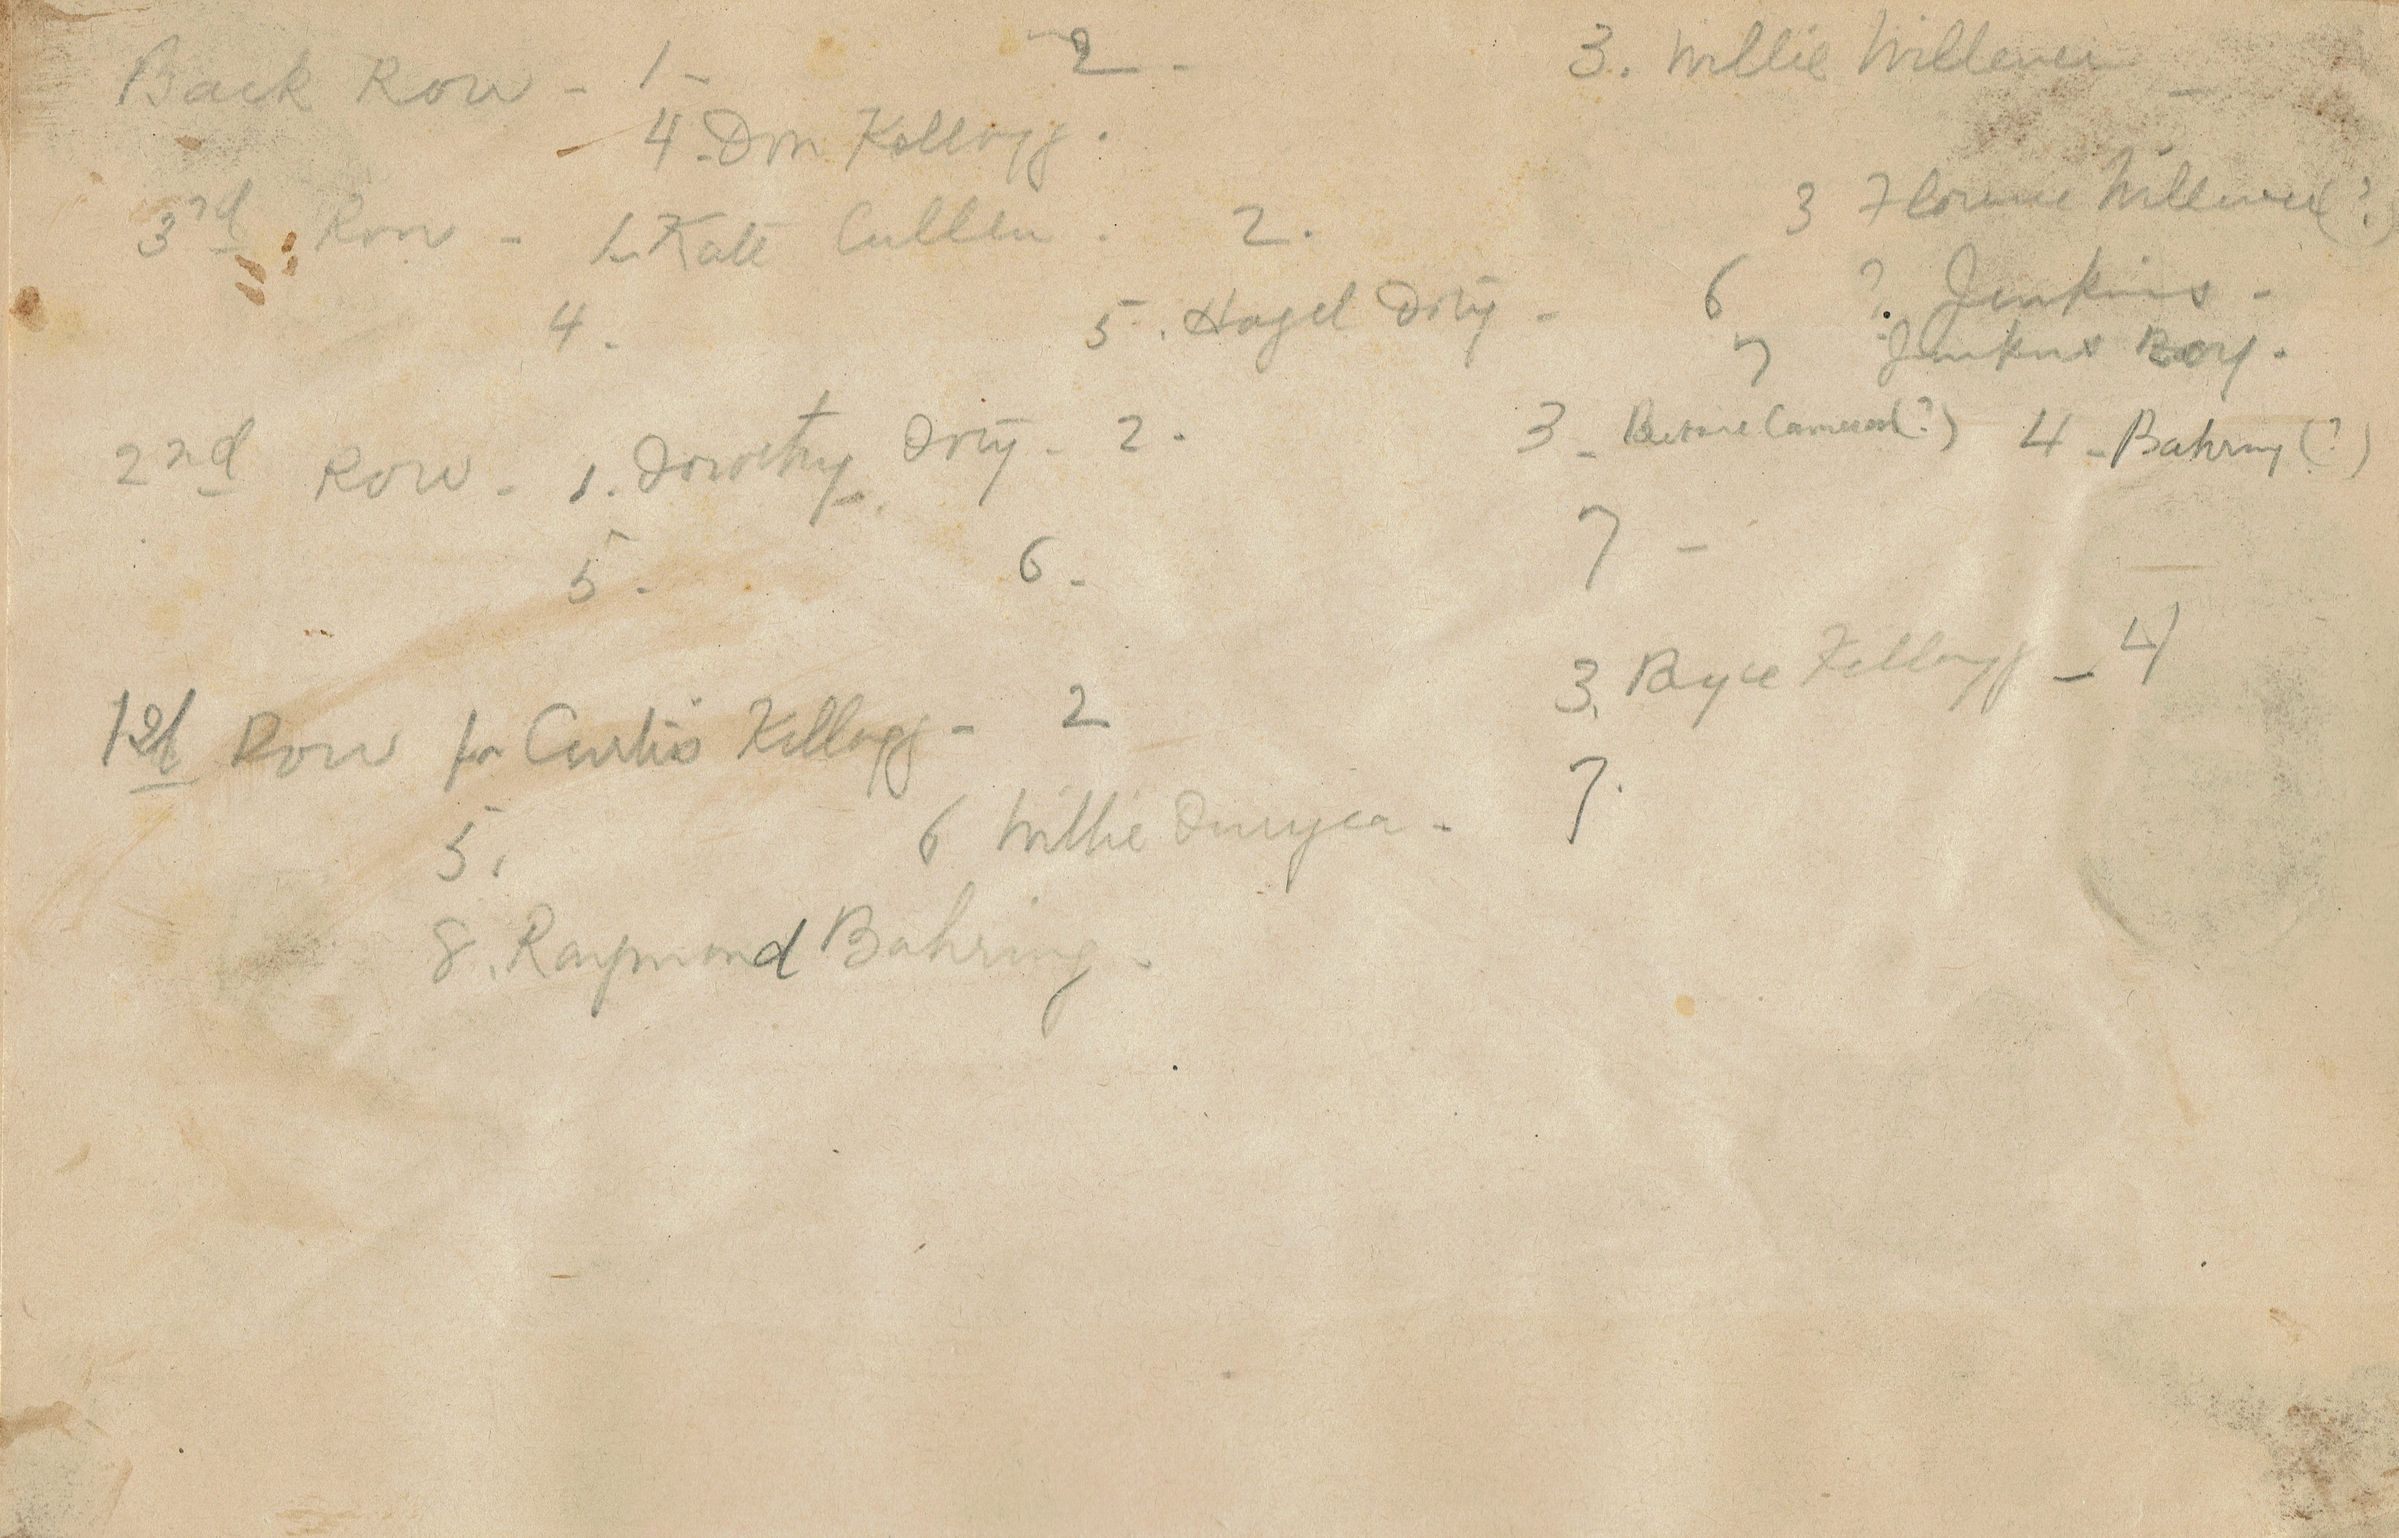 Back Row - 1- 2 - 3. Willie Willever -
4. Don Kellogg.
3rd Row - 1. Kate Cullen. 2. 3 Florence Willever (?)
4. 5. Hazel Doty - 6 ? Jenkins -
7 Jenkins Boy.
2nd Row - 1. Dorothy Doty - 2. 3 - Cameron (?) 4 - Bahring (?)
5 - 6 - 7 -
1st Row 1- Curtis Kellogg - 2 3. Byce Kellogg - 4
5. 6 Willie Duryea - 7.
8. Raymond Bahring -